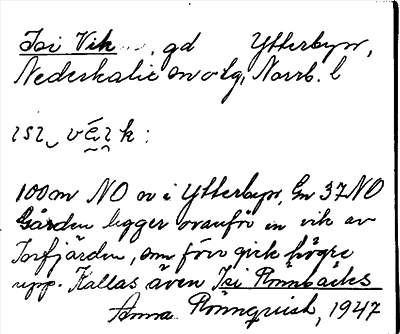 Isi Vik, gd Ytterbyn,
Nederkalix sn o lg, Norrb. l
ɪsɪ‿véɪk:
100 m NO ov i Ytterbyn, Gn 37 NO
Gården ligger ovanför en vik av
Torfjärden, som förr gick högre
upp. Kallas även Isi Rönnbäcks
Anna Rönnquist, 1947